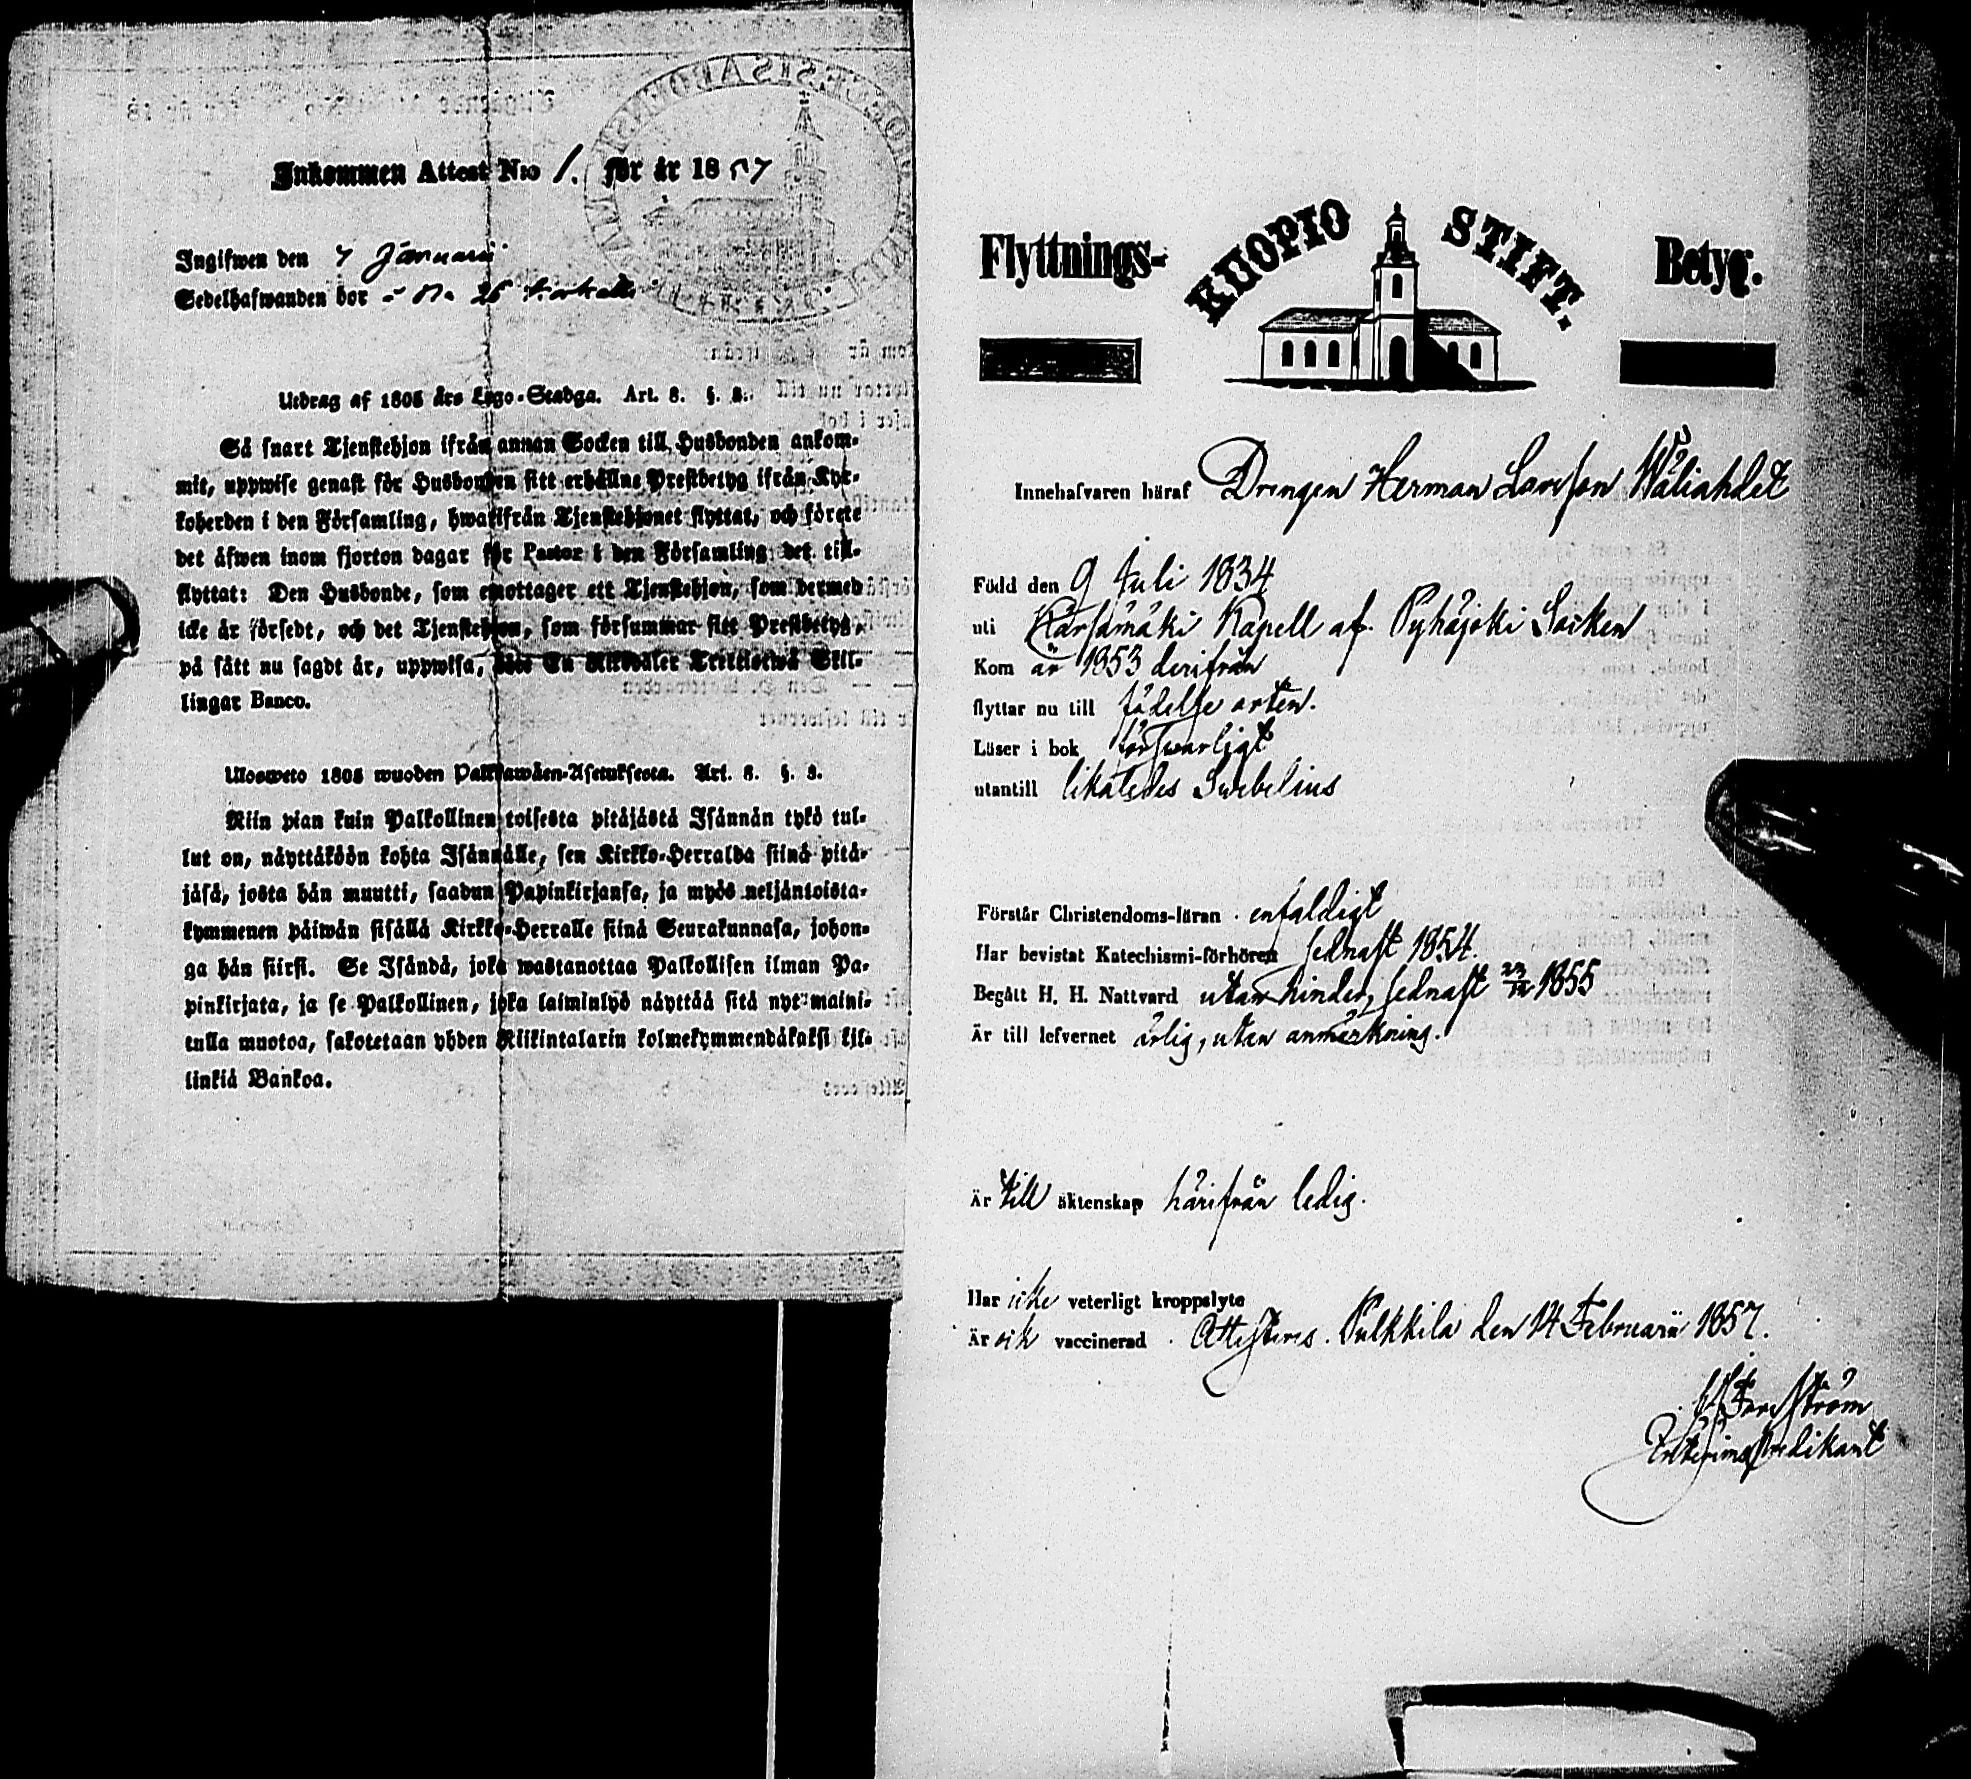 Inkommen Attest N:o 1. för år 1857
Ingifwen den 7 Januari
Sedelhafwanden bor å N:o 26
Utdrag af 1805 års Lego-Stadga. Art. 8. §. 3.
Så snart Tjenstehjon ifrån annan Socken till Husbonden ankom-
mit, uppwise genast för Husbonden sitt erhållne Prestbetyg ifrån Kyr-
koherden i den Församling, hwarifrån Tjenstehjonet flyttat, och förete
det äfwen inom fjorton dagar för Pastor i den Församling det till-
flyttat: Den Husbonde, som emottager ett Tjenstehjon, som dermed
icke är försedt, och det Tjenstehjon, som försummar sitt Prestbetyg,
på sätt nu sagdt är, uppwisa, böte En Riksdaler Trettiotwå Skil-
lingar Banco.
Ulosweto 1805 wuoden Palkkawäen-Asetuksesta. Art. 8. §. 3.
Niin pian kuin Palkollinen toisesta pitäjästä Isännän tykö tul-
lut on, näyttäköön kohta Isännälle, sen Kirkko-Herralda siinä pitä-
jäsä, josta hän muutti, saadun Papinkirjansa, ja myös neljäntoista-
kymmenen päiwän sisällä Kirkko-Herralle siinä Seurakunnasa, johon-
ga hän siirsi. Se Isändä, joka wastanottaa Palkollisen ilman Pa-
pinkirjata, ja se Palkollinen, joka laiminlyö näyttää sitä nyt maini-
tulla muotoa, sakotetaan yhden Riikintalarin kolmekymmendäkaksi kil-
linkiä Bankoa.
Flyttnings- KUOPIO STIFT. Betyg.
Innehafvaren häraf Drengen Herman Larsson Wäliahdet
Född den 9 Juli 1834
uti Kärsämäki Kapell af Pyhäjoki Socken
Kom år 1853 derifrån
flyttar nu till födelse orten.
Läser i bok försvarligt
utantill likaledes Swebelius
Förstår Christendoms-läran enfaldigt
Har bevistat Katechismi-förhören sednast 1854.
Begått H. H. Nattvard utan hinder, sednast 23/12 1855
Är till lefvernet ärlig, utan anmärkning.
Är till äktenskap härifrån ledig.
Har icke veterligt kroppslyte
Är ock vaccinerad Attesteras. Pulkkila den 14 Februarii 1857.
Interimspredikant